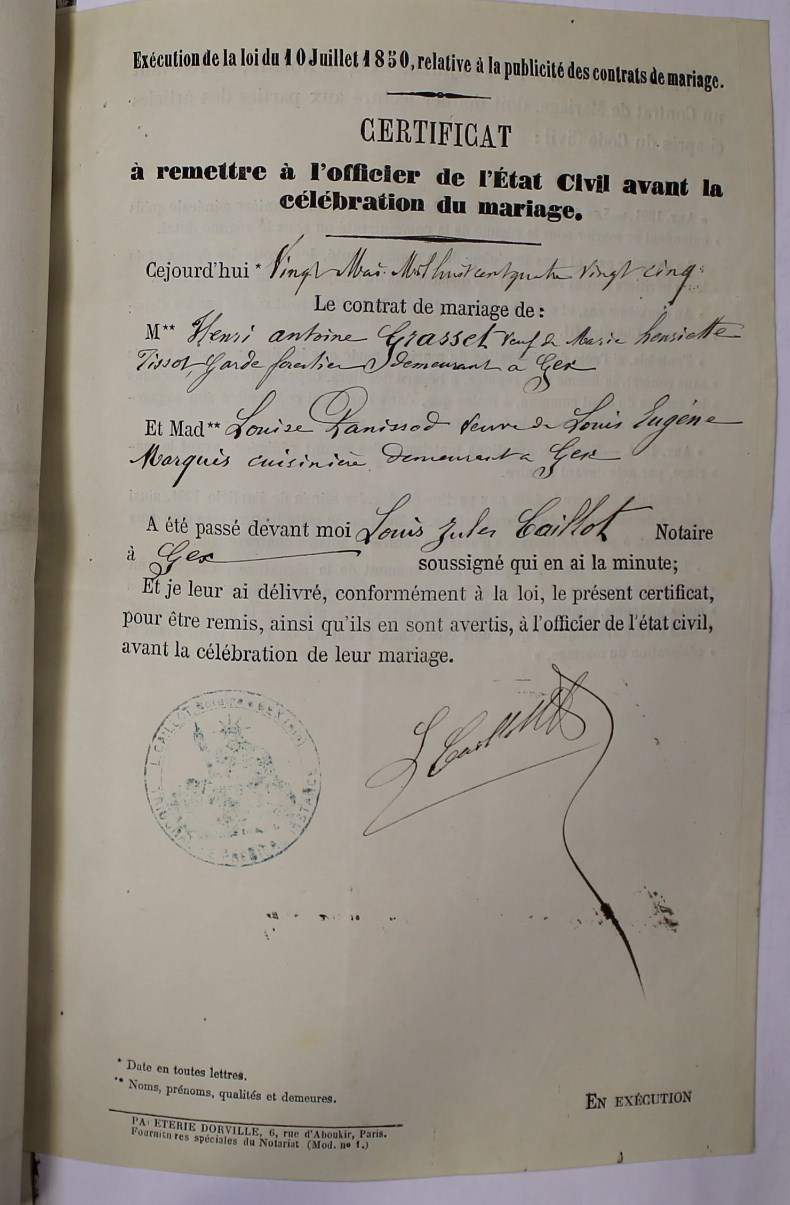 Exécution de la loi du 10 Juillet 1850, relative à la publicité des contrats de mariage.
CERTIFICAT
à remettre à l'officier de l'État Civil avant la
célébration du mariage.
Cejourd'hui * Vingt Mai Mil huit cent quatre vingt cinq
Le contrat de mariage de :
M** Henri antoine Grasset veuf de Marie henriette
Tissot Garde forestier demeurant a Gex
Et Mad** Louise Panissod veuve de Louis Eugéne
Marquis cuisinière demeurant a Gex
A été passé devant moi Louis Jules Caillot Notaire
à Gex soussigné qui en ai la minute;
Et je leur ai délivré, conformément à la loi, le présent certificat,
pour être remis, ainsi qu'ils en sont avertis, à l'officier de l'état civil,
avant la célébration de leur mariage.
L. CAILLOT Notaire
L Caillot
* Date en toutes lettres.
** Noms, prénoms, qualités et demeures.
EN EXÉCUTION
PA ETERIE DORVILLE, 6, rue d'Aboukir, Paris.
Fournitures spéciales du Notariat (Mod. nº 1.)